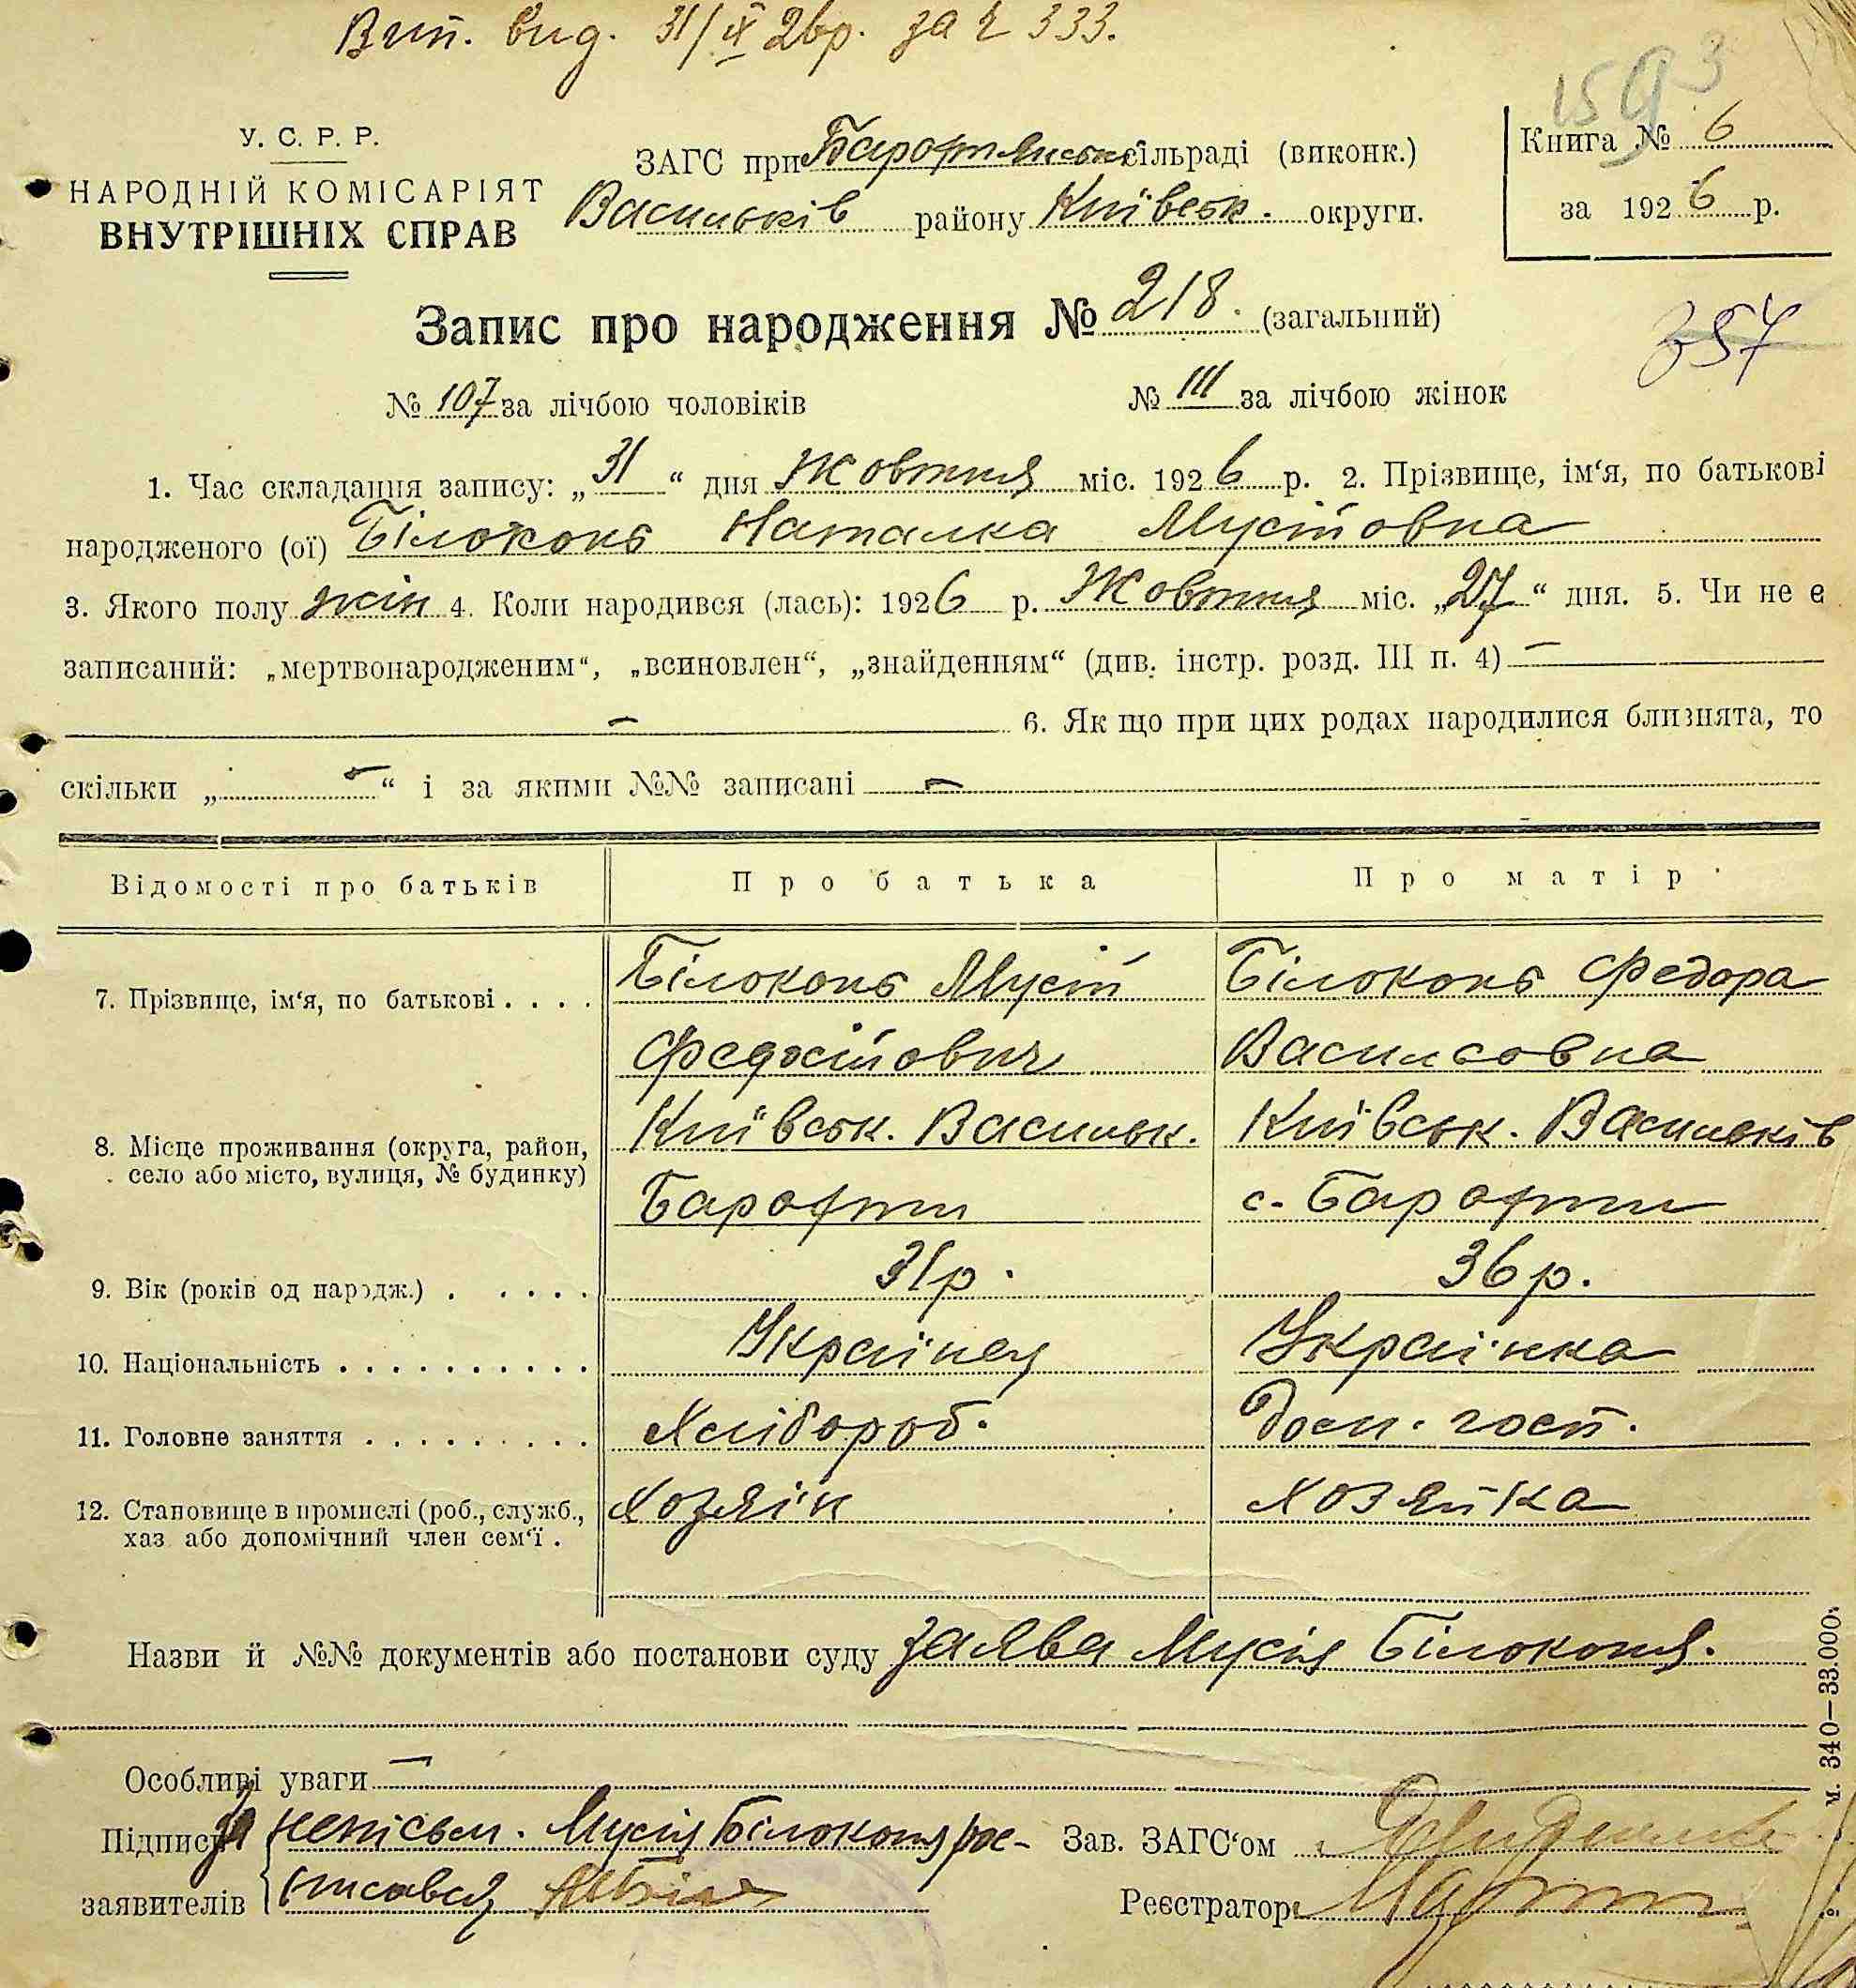 Вип. вид. 31/IX 26р. за № 333.
1593
У. С. Р. Р.
НАРОДНІЙ КОМІСАРІЯТ
ВНУТРІШНІХ СПРАВ
ЗАГС при Барахтянській сільраді (виконк.)
Васильків району Київськ. округи.
Книга № 6
за 1926 р.
Запис про народження № 218. (загальний)
357
№ 107 за лічбою чоловіків № 111 за лічбою жінок
1. Час складання запису: „31“ дня Жовтня міс. 1926 р. 2. Прізвище, ім‘я, по батькові
народженого (ої) Білоконь Наталка Мусіївна
3. Якого полу жін 4. Коли народився (лась): 1926 р. Жовтня міс. „27“ дня. 5. Чи не є
записаний: „мертвонародженим“, „всиновлен“, „знайденням“ (див. інстр. розд. III п. 4) —
— 6. Як що при цих родах народилися близнята, то
скільки „—“ і за якими №№ записані —
Відомості про батьків Про батька Про матір
7. Прізвище, ім‘я, по батькові . . . . Білоконь Мусій Білоконь Федора
Федосійович Василовна
8. Місце проживання (округа, район, Київськ. Васильк. Київськ. Васильків
село або місто, вулиця, № будинку)
Барахти с. Барахти
9. Вік (років од народж.) . . . . . . 31р. 36р.
10. Національність . . . . . . . . . . Українец Українка
11. Головне заняття . . . . . . . . . Хлібороб. Дом. госп.
12. Становище в промислі (роб., служб., Хозяїн хозяйка
хаз або допомічний член сем‘ї .
Назви й №№ документів або постанови суду заява Мусія Білоконя.
м. 340—33.000
Особливі уваги —
Підписи За неписьм. Мусія Білоконя рос-
заявителів писався
Зав. ЗАГС‘ом
Реєстратор